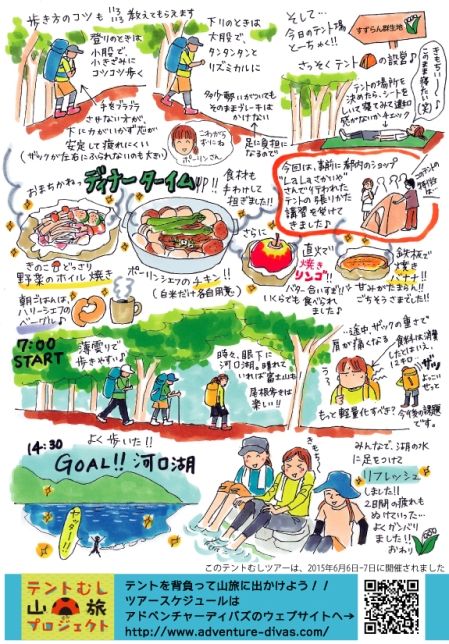 歩き方のコツも教えてもらえます
登りのときは
小股で
小きざみに
コツコツ歩く
手をブラブラ
させない方が、
下に力がいかず芯が
安定して疲れにくい
(ザックが左右にふられないのも大事)
下りのときは
大股で、
タンタンタンと
リズミカルに
多少勢いがついても
そのままブレーキは
かけない
足に負担に
なるので
ポーリンさん
そして…
今日のテント場
とーちゃく!!
すずらん群生地
さっそくテントの設営♪
テントの場所を
決めたら、シートを
しいて寝てみて違和
感がないかチェック
きもちいー
このまま寝たい
(笑)
今回は、事前に都内のショップ
さんで行われた
テントの張りかた
講習を受けて
きました♪
おまちかねっ
ディナータイムUP!!
食材も
手わけして
担ぎました!!
きのこどっさり
野菜のホイル焼き
ポーリンシェフのチキン!!
(白米だけ各自用意)
さらに
直火で
焼き
リンゴ!!
バター合いすぎ!!
いくらでも食べられ
ました♪
鉄板で
焼き
バナナ!!
甘みがたまらん!!
ごちそうさまでした!!
朝ごはんは、
ハリーシェフの
ベーグル♪
7:00
START
薄曇りで
歩きやすい♪
時々、眼下に
河口湖。晴れて
いれば富士山も!
尾根歩きは
楽しい!!
…途中、ザックの重さで
肩が痛くなる
食料は消費
したとはいえ、
12キロ…
もっと軽量化すべき?
今後の課題
です。
14:30
よく歩いた!!
GOAL!! 河口湖
ヤッター!!
きもちー
みんなで、湖の水
に足をつけて
リフレッシュ
しました!!
2日間の疲れも
ぬけていった…
よくガンバり
ました!!
おわり
このテントむしツアーは、2015年6月6日-7日に開催されました
テントむし
山旅
プロジェクト
テントを背負って山旅に出かけよう!!
ツアースケジュールは
アドベンチャーディバズのウェブサイトへ→
http://www.adventure-divas.com/